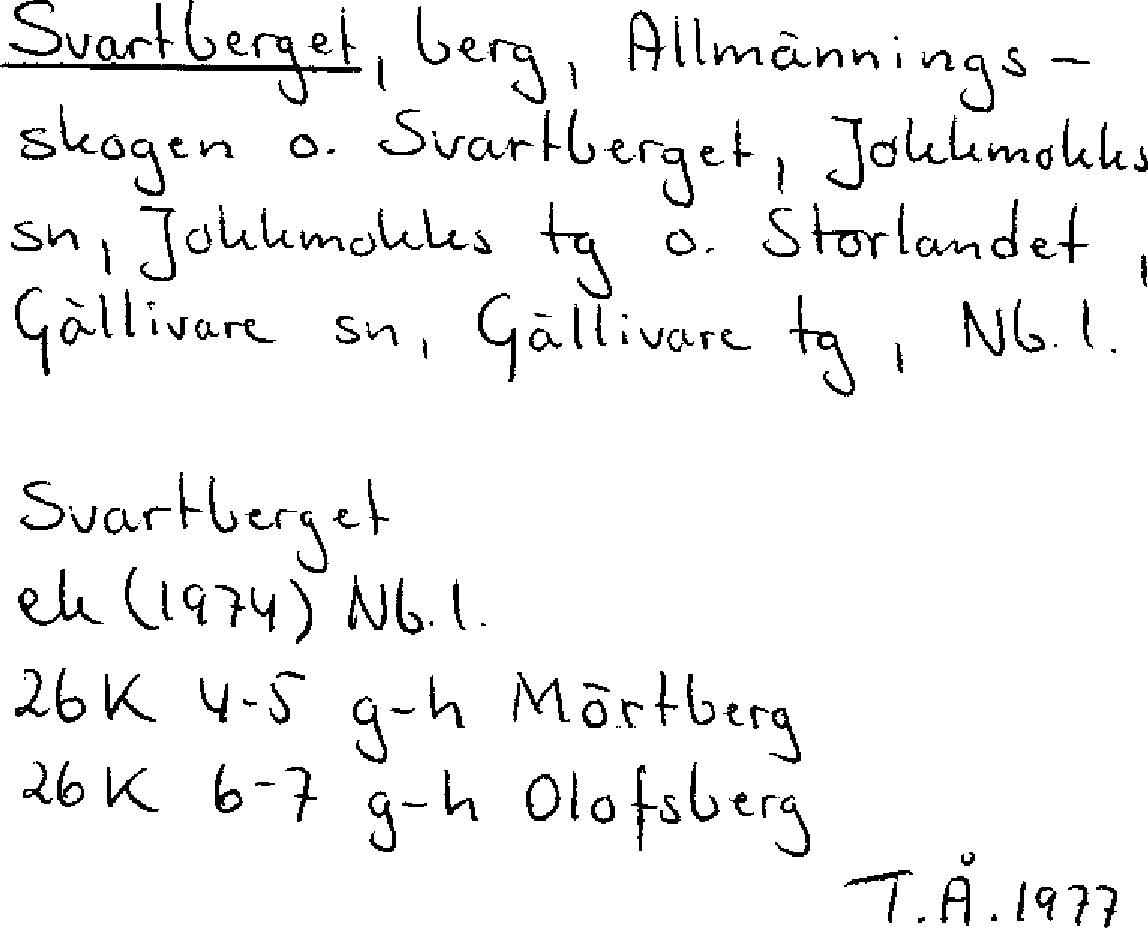 Svartberget, berg, Allmännings-
skogen o. Svartberget, Jokkmokks
sn, Jokkmokks tg o. Storlandet,
Gällivare sn, Gällivare tg, Nb.l.
Svartberget
ek (1974) Nb.l.
26K 4-5 g-h Mörtberg
26K 6-7 g-h Olofsberg
T.Å.1977